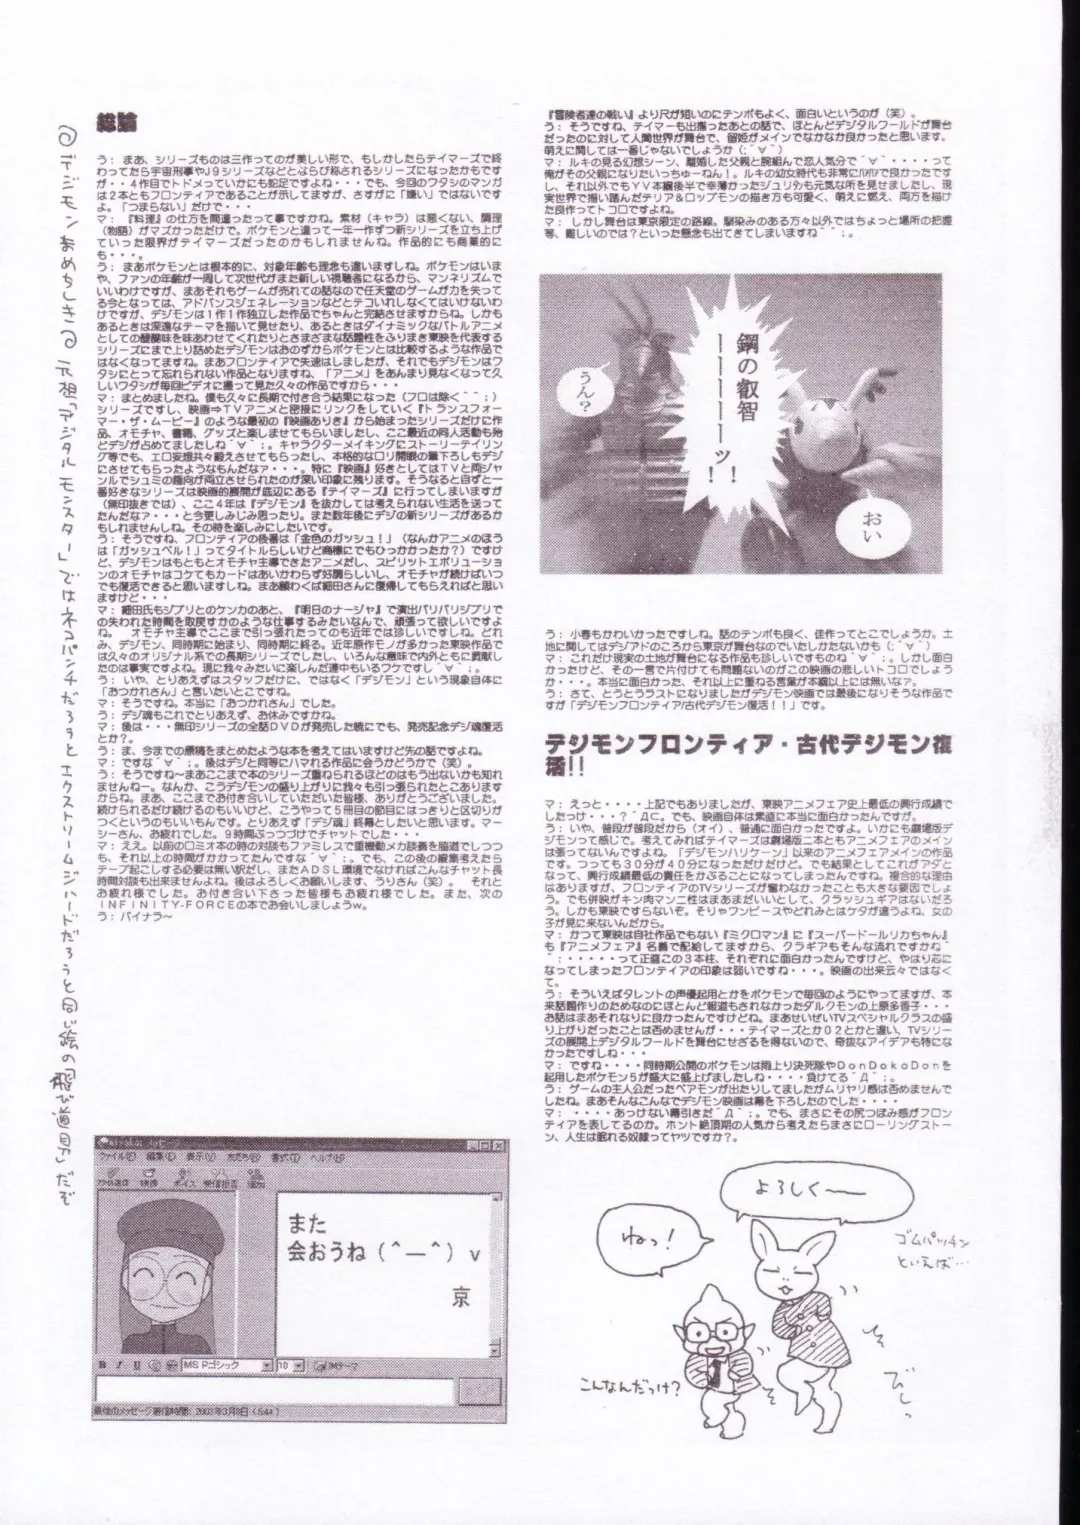 ◎デジモンまめちしき◎元祖「デジタルモンスター」ではネコパンチだろうとエクストリームジハードだろうと同じ絵の「飛び道具」だぞ
総論
う：まあ、シリーズものは三作ってのが美しい形で、もしかしたらテイマーズで終
わってたら宇宙刑事やJ9シリーズなどとならび称されるシリーズになったかもです
が・・4作目でトドメっていかにも蛇足ですよね・・・でも、今回のフタシのマンガ
は2本ともフロンティアであることが示してますが、さすがに「嫌い」ではないです
よ。「つまらない」だけで・・・
マ：『料理』の仕方を間違ったって事ですかね。素材（キャラ）は悪くない、調理
（物語）がマズかっただけで。ポケモンと違って一年一作ずつ新シリーズを立ち上げ
ていった限界がテイマーズだったのかもしれませんね。作品的にも商業的に
も・・・。
う：まあポケモンとは根本的に、対象年齢も理念も違いますしね。ポケモンはいま
や、ファンの年齢が一周して次世代がまた新しい視聴者になるから、マンネリズムで
いいわけですが、まあそれもゲームが売れての話なので任天堂のゲームが力を失って
る今となっては、アドバンスジェネレーションなどとテコいれしなくてはいけないわ
けですが、デジモンは1作1作独立した作品でちゃんと完結させますからね。しかも
あるときは深遠なテーマを描いて見せたり、あるときはダイナミックなバトルアニメ
としての醍醐味を味あわせてくれたりとさまざまな話題性をふりまき東映を代表する
シリーズにまで上り詰めたデジモンはおのずからポケモンとは比較するような作品で
はなくなってますね。まあフロンティアで失速はしましたが、それでもデジモンはワ
タシにとって忘れられない作品となりますね、「アニメ」をあんまり見なくなって久
しいワタシが毎回ビデオに撮って見た久々の作品ですから・・・
マ：まとめましたね。僕も久々に長期で付き合う結果になった（フロは除く＾＾；）
シリーズですし、映画⇒TVアニメと密接にリンクをしていく『トランスフォー
マー・ザ・ムービー』のような最初の『映画ありき』から始まったシリーズだけに作
品、オモチャ、書籍、グッズと楽しませてもらいましたし、ここ最近の同人活動も殆
どデジが占めてましたしね´∀｀；。キャラクターメイキングにストーリーテイリン
グ等でも、エロ妄想共々鍛えさせてもらったし、本格的なロリ開眼の筆下ろしもデジ
にさせてもらったようなもんだなァ・・・。特に『映画』好きとしてはTVと両ジャ
ンルでシュミの趣向が両立させられたのが深い印象に残ります。そうなると自ずと一
番好きなシリーズは映画的展開が底辺にある『テイマーズ』に行ってしまいますが
（無印抜きでは）、ここ4年は『デジモン』を抜かしては考えられない生活を送って
たんだなァ・・・と今更しみじみ思ったり。また数年後にデジの新シリーズがあるか
もしれませんしね。その時を楽しみにしたいです。
う：そうですね、フロンティアの後番は「金色のガッシュ！」（なんかアニメのほう
は「ガッシュベル！」ってタイトルらしいけど商標にでもひっかかったか？）ですけ
ど、デジモンはもともとオモチャ主導できたアニメだし、スピリットエボリューショ
ンのオモチャはコケてもカードはあいかわらず好調らしいし、オモチャが続けばいつ
でも復活できると思いますしね。まあ願わくば細田さんに復帰してもらえればと思い
ますけど・・・
マ：細田氏もジブリとのケンカのあと、『明日のナージャ』で演出バリバリジブリで
の失われた時間を取戻すかのような仕事するみたいなんで、頑張って欲しいですよ
ね。　オモチャ主導でここまで引っ張れたってのも近年では珍しいですしね。どれ
み、デジモン、同時期に始まり、同時期に終る。近年原作モノが多かった東映作品で
は久々のオリジナル系での長期シリーズでしたし、いろんな意味で内外ともに貢献し
たのは事実ですよね。現に我々みたいに楽しんだ連中もいるワケですし´∀｀；。
う：いや、とりあえずはスタッフだけに、ではなく「デジモン」という現象自体に
「おつかれさん」と言いたいとこですね。
マ：そうですね。本当に「おつかれさん」でした。
う：デジ魂もこれでとりあえず、お休みですかね。
マ：後は・・・無印シリーズの全話DVDが発売した暁にでも、発売記念デジ魂復活
とか？。
う：ま、今までの原稿をまとめたような本を考えてはいますけど先の話ですよね。
マ：ですなˊ∀｀；。後はデジと同等にハマれる作品に会うかどうかで（笑）。
う：そうですね～まあここまで本のシリーズ重ねられるほどのはもう出ないかも知れ
ませんねー。なんか、こうデジモンの盛り上がりに我々も引っ張られたとこあります
からね。まあ、ここまでお付き合いしていただいた皆様、ありがとうございました。
続けられるだけ続けるのもいいけど、こうやって5冊目の節目にはっきりと区切りが
つくというのもいいもんです。とりあえず「デジ魂」終幕としたいと思います。マー
シーさん、お疲れでした。9時間ぶっつづけでチャットでした・・・
マ：ええ。以前のロミオ本の時の対談もファミレスで重機動メカ談義を脇道でしつつ
も、それ以上の時間がかかってたんですな´∀｀；。でも、この後の編集考えたら
テープ起こしする必要は無い訳だし、またADSL環境でなければこんなチャット長
時間対談も出来ませんよね。後はよろしくお願いします、うりさん（笑）。それと
お疲れ様でした。お付き合い下さった皆様もお疲れ様でした。また、次の
INFINITY-FORCEの本でお会いしましょうw。
う：バイナラ～
ファイル(F)　編集(E)　表示(V)　友だち(R)　書式(T)　ヘルプ(H)
ファイル送信　映像　ボイス　受信拒否　追加
また
会おうね（＾－＾）v
京
B I U　MS Pゴシック　10　IMテーマ
最後のメッセージ着信時間: 2003年3月8日 (5:44)
『冒険者達の戦い』より尺が短いのにテンポもよく、面白いというのが（笑）。
う：そうですね、テイマーも出揃ったあとの話で、ほとんどデジタルワールドが舞台
だったのに対して人間世界が舞台で、留姫がメインでなかなか良かったと思います。
萌えに関しては一番じゃないでしょうか（;´∀｀）
マ：ルキの見る幻想シーン、離婚した父親と腕組んで恋人気分で´∀｀・・・・って
俺がその父親になりたいっちゅーねん！。ルキの幼女時代も非常にﾊｱﾊｱで良かったです
し、それ以外でもYV本編後半で幸薄かったジュリｸｶも元気な所を見せましたし、現
実世界で掴い踏んだテリア＆ロップモンの描き方も可愛く、萌えに燃え、両方を描け
た良作ってトコロですよね。
マ：しかし舞台は東京限定の路線。馴染みのある方々以外ではちょっと場所の把握
等、難しいのでは？といった懸念も出てきてしまいますね＾＾；。
うん？
鋼の叡智ーーーーーッ！！
おい
う：小春もかわいかったですしね。話のテンポも良く、佳作ってとこでしょうか。土
地に関してはデジアドのころから東京が舞台なのでいたしかたないかも（;´∀｀）
マ：これだけ現実の土地が舞台になる作品も珍しいですものね´∀｀；。しかし面白
かったけど、その一言で片付けても問題ないのがこの映画の悲しいトコロでしょう
か・・・。本当に面白かった、それ以上に重ねる言葉が本編以上には無いなァ。
う：さて、とうとうラストになりましたがデジモン映画では最後になりそうな作品で
すが「デジモンフロンティア/古代デジモン復活！！」です。
デジモンフロンティア・古代デジモン復
活!!
マ：えっと・・・・上記でもありましたが、東映アニメフェア史上最低の興行成績で
したっけ・・・？´Д⊂。でも、映画自体は素直に本当に面白かったんですが。
う：いや、普段が普段だから（オイ）、普通に面白かったですよ。いかにも劇場版デ
ジモンって感じで。考えてみればテイマーズは劇場版二本ともアニメフェアのメイン
は張ってないんですよね。「デジモンハリケーン」以来のアニメフェアメインの作品
です。つっても30分が40分になっただけだけど。でも結果としてこれがアダと
なって、興行成績最低の責任をかぶることになってしまったんですね。複合的な理由
はありますが、フロンティアのTVシリーズが奮わなかったことも大きな要因でしょ
う。でも併映がキン肉マン二性はまあまだいいとして、クラッシュギアはないだろ
う。しかも東映ですらないぞ。そりゃワンピースやどれみとはケタが違うよね、女の
子が見に来ないんだから。
マ：かつて東映は自社作品でもない『ミクロマン』に『スーパードールリカちゃん』
も『アニメフェア』名義で配給してますから、クラギアもそんな流れですかね´
｀；・・・・・って正直この3本柱、それぞれに面白かったんですけど、やはり芯に
なってしまったフロンティアの印象は弱いですね・・・。映画の出来云々ではなく
て。
う：そういえばタレントの声優起用とかをポケモンで毎回のようにやってますが、本
来話題作りのためなのにほとんど報道もされなかったダルクモンの上原多香子・・・
お話はまあそれなりに良かったんですけどね。まあせいぜいTVスペシャルクラスの盛
り上がりだったことは否めませんが・・・テイマーズとか02とかと違い、TVシリー
ズの展開上デジタルワールドを舞台にせざるを得ないので、奇抜なアイデアも特にな
かったですしね・・・
マ：ですね・・・・同時期公開のポケモンは雨上り決死隊やDonDokoDonを
起用したポケモン5が盛大に盛上げましたしね・・・・負けてる´Д｀；。
う：ゲームの主人公だったベアモンが出たりしてましたがムリヤリ感は否めませんで
したね。まあそんなこんなでデジモン映画は幕を下ろしたのでした・・・・
マ：・・・・あっけない幕引きだ´Д｀；。でも、まさにその尻つぼみ感がフロン
ティアを表してるのか。ホント絶頂期の人気から考えたらまさにローリングストー
ン、人生は眠れる奴隷ってヤツですか？。
よろしく～
ねっ！
ゴムパッチン
といえば…
こんなんだっけ？
びしっ